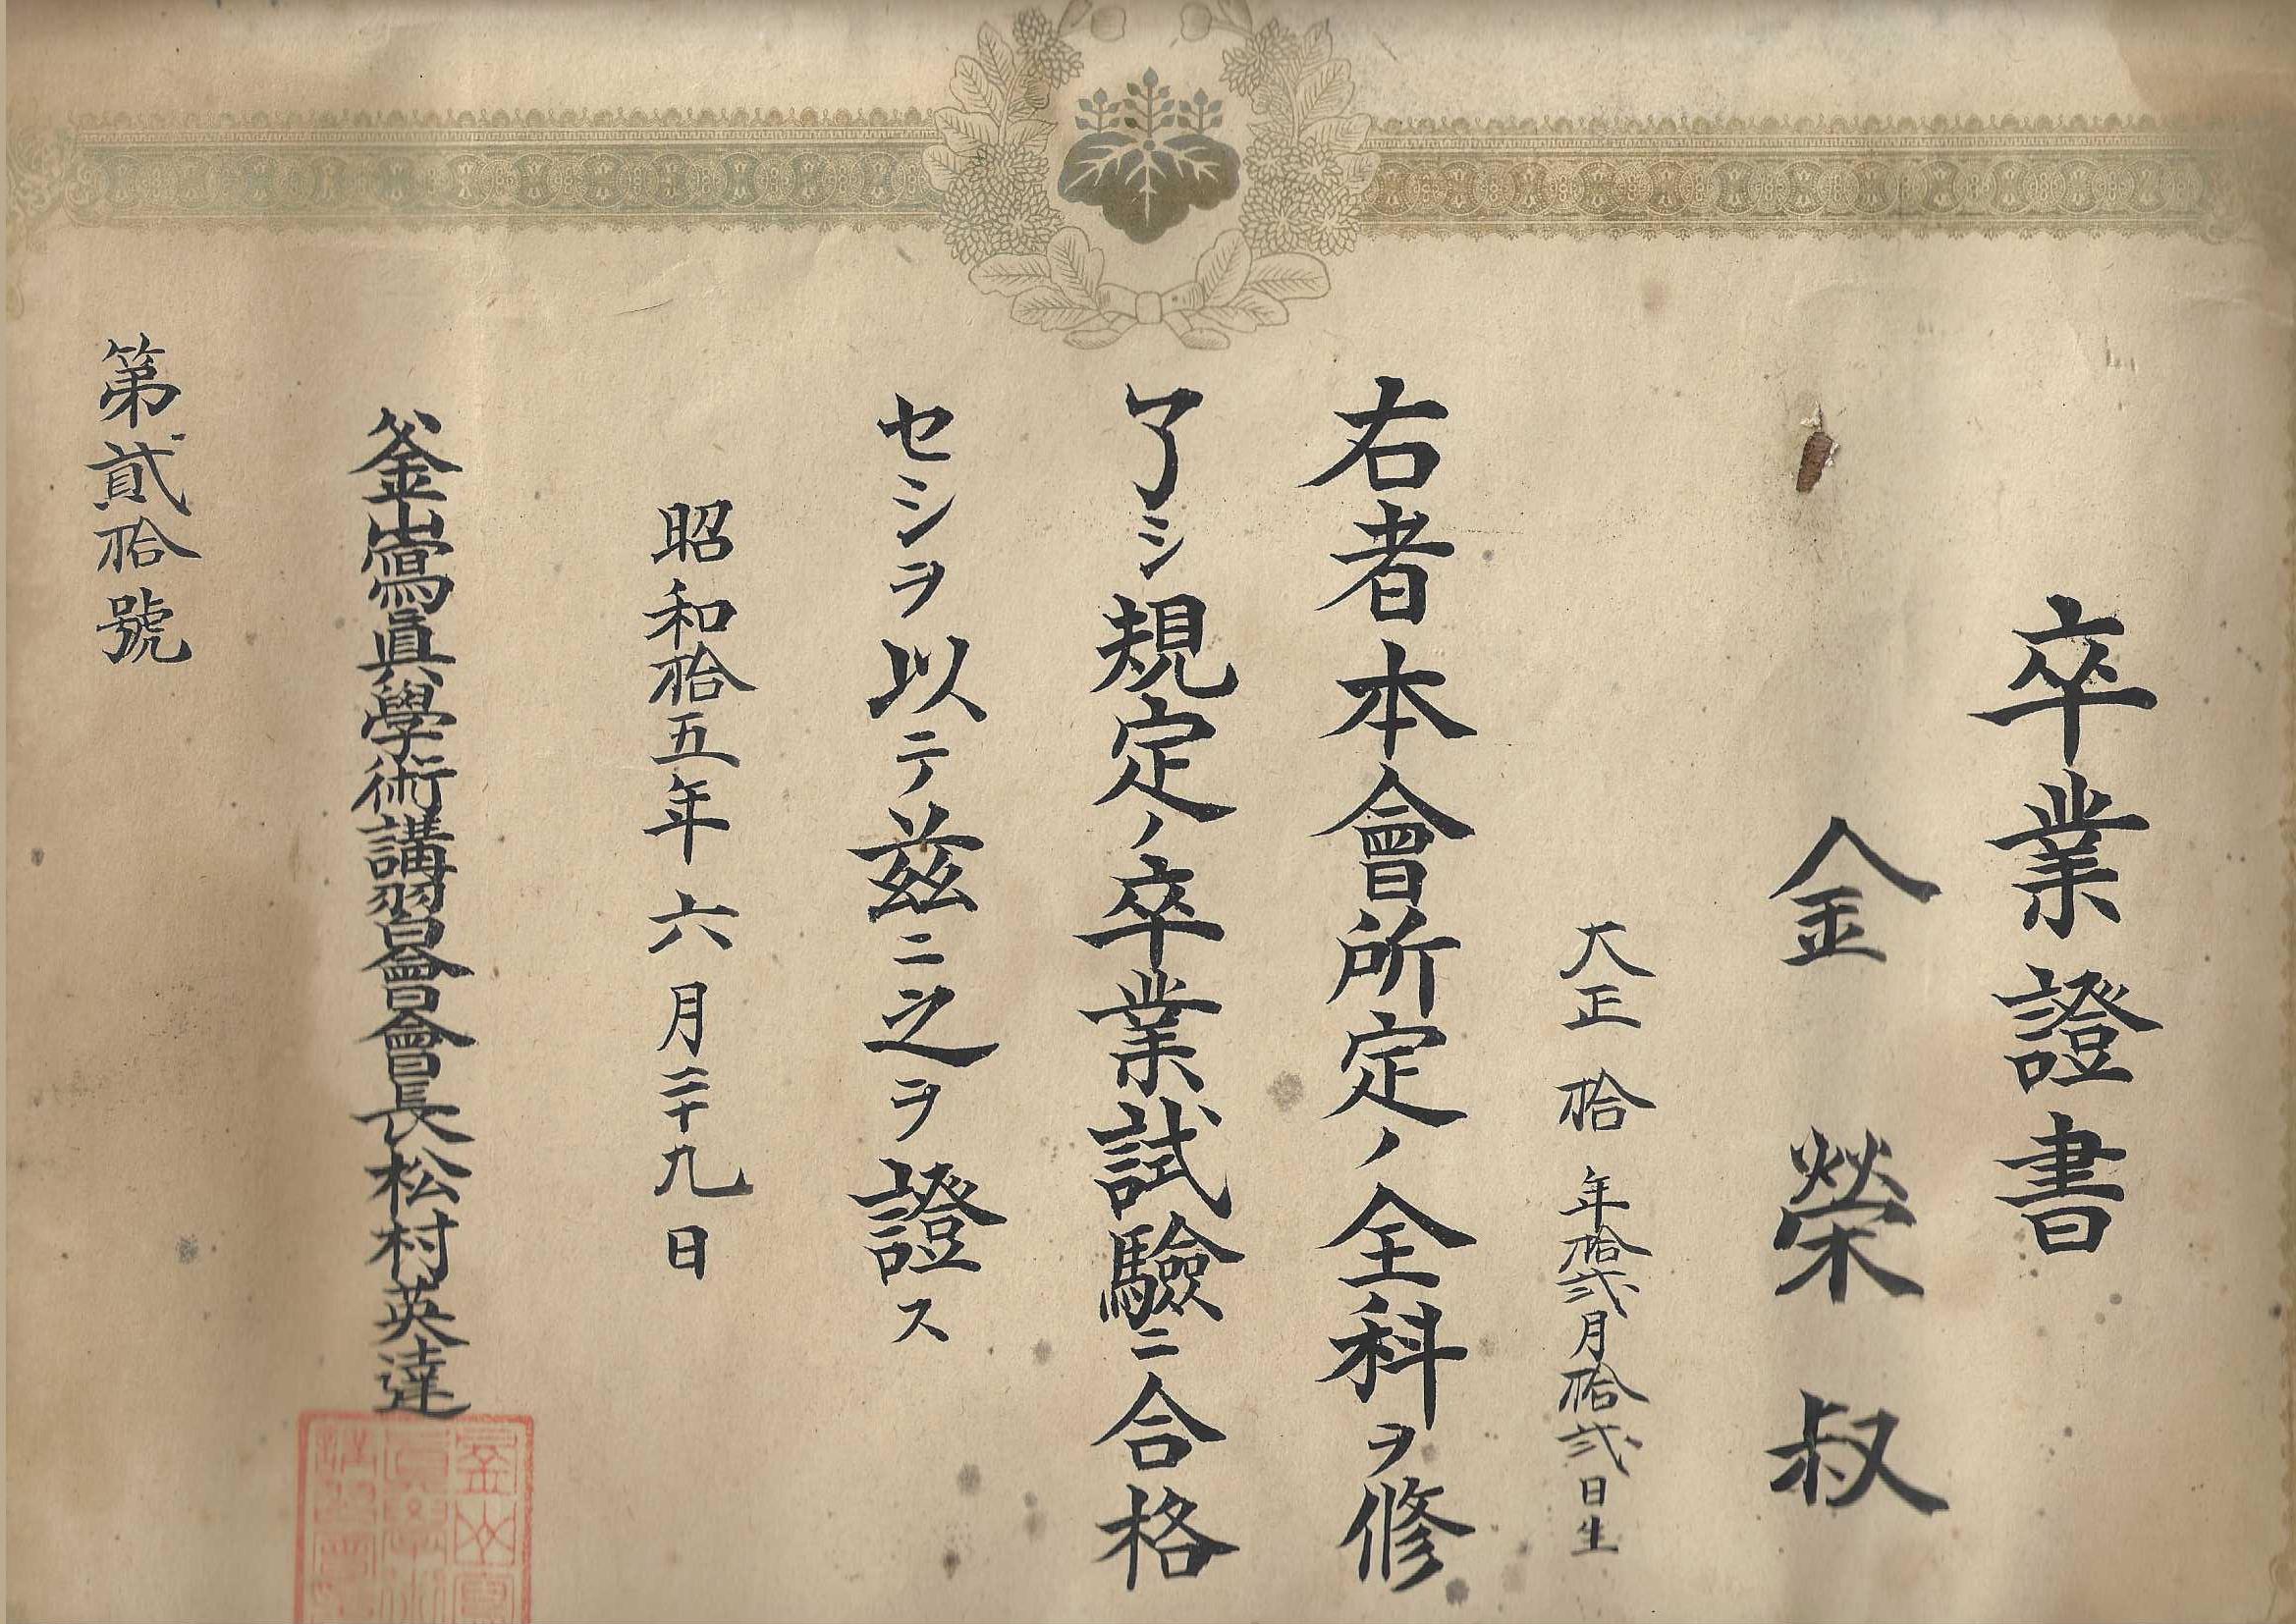 卒業證書
金榮叔
大正拾年拾弐月拾弐日生
右者本會所定ノ全科ヲ修
了シ規定ノ卒業試驗ニ合格
セシヲ以テ茲ニ之ヲ證ス
昭和拾五年六月二十九日
釜山寫眞學術講習會會長松村英達
第貳拾號